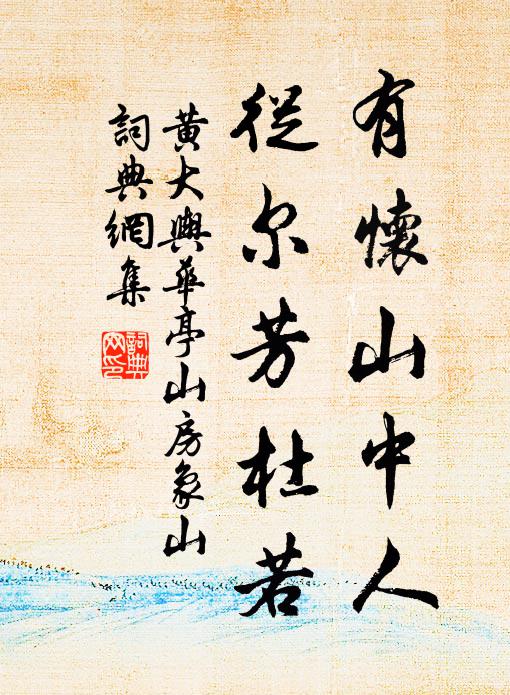 有懷山中人
從尔芳杜若
黃大輿華亭山房象山
詞典網集
詞典
网印